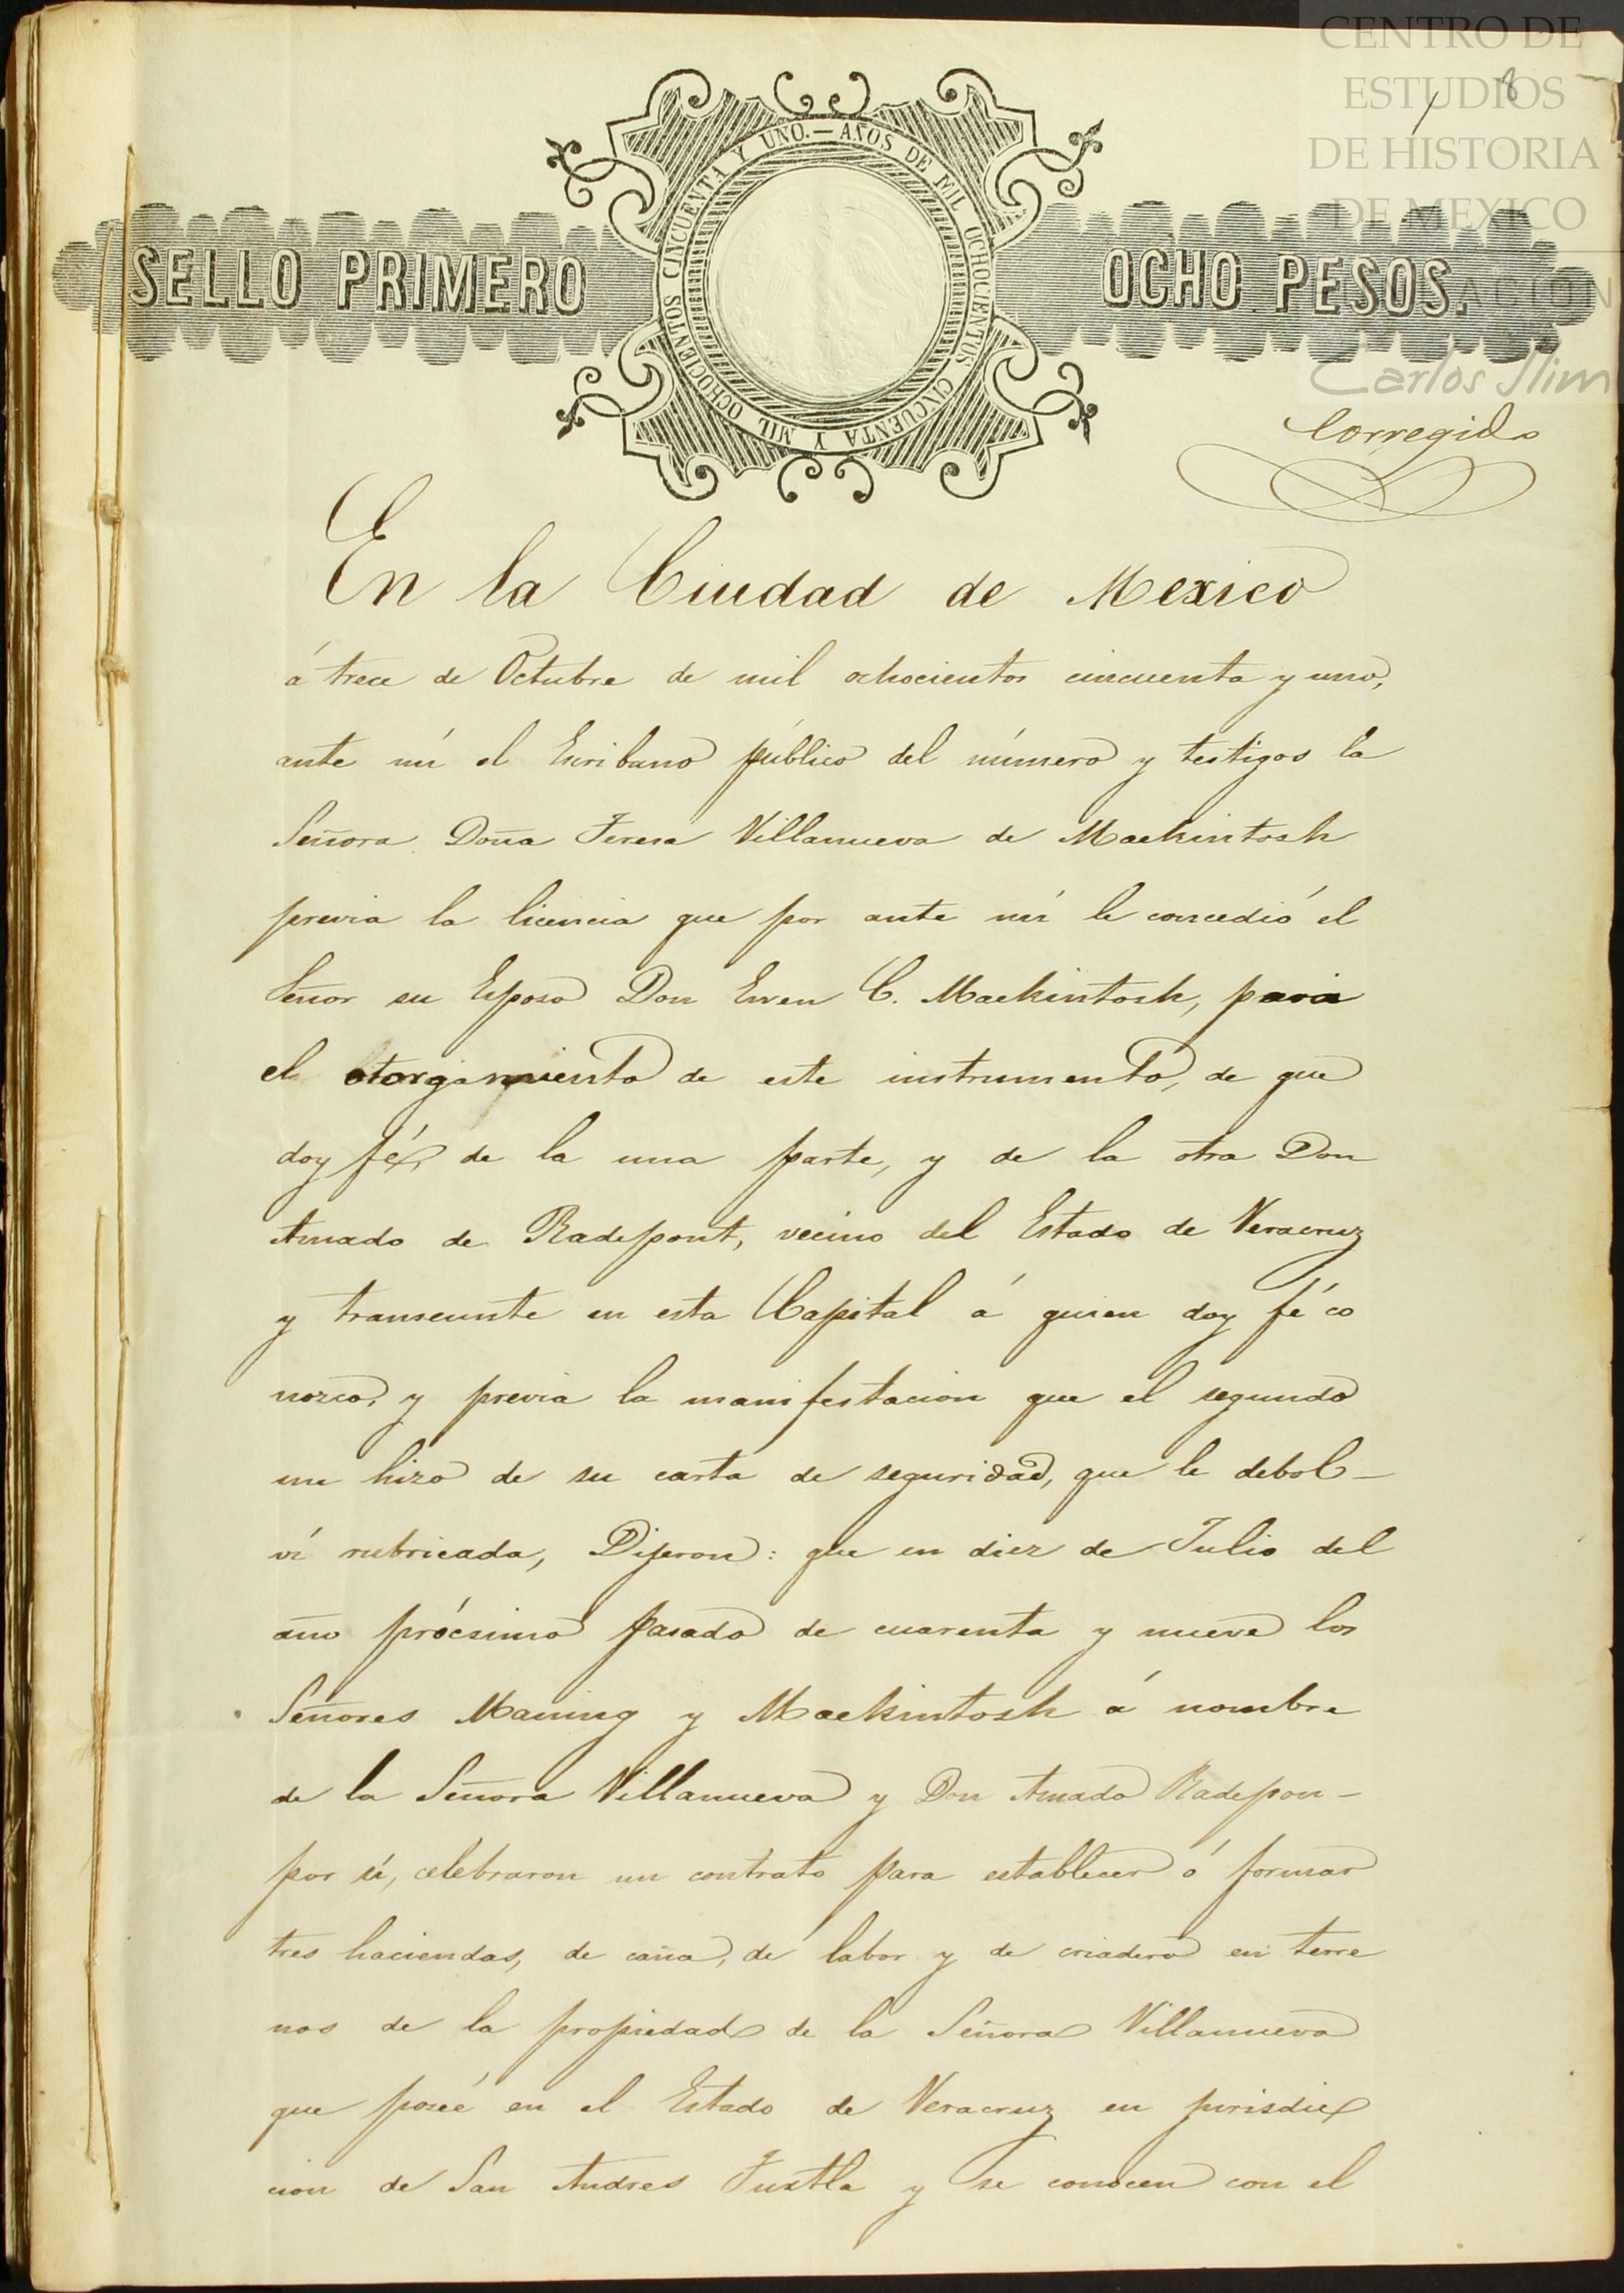 CENTRO DE
ESTUDIOS
DE HISTORIA
DE MEXICO
8
SELLO PRIMERO
AÑOS DE MIL OCHOCIENTOS CINCUENTA Y MIL OCHOCIENTOS CINCUENTA Y UNO.—
OCHO PESOS.
Carlos Slim
Corregido
En la Ciudad de Mexico
á trece de Octubre de mil ochocientos cincuenta y uno,
ante mí el Escribano público del número y testigos la
Señora Doña Teresa Villanueva de Mackintosh
previa la licencia que por ante mí le concedió el
Señor su Esposo Don Ewen C. Mackintosh, para
el otorgamiento de este instrumento, de que
doy fé, de la una parte, y de la otra Don
Amado de Radepont, vecino del Estado de Veracruz
y transeunte en esta Capital á quien doy fé co
nozco, y previa la manifestacion que el segundo
me hizo de su carta de seguridad, que le debol-
ví rubricada, Dijeron: que en diez de Julio del
año prócsimo pasado de cuarenta y nueve los
Señores Maning y Mackintosh á nombre
de la Señora Villanueva y Don Amado Radepon-
por sí, celebraron un contrato para establecer ó formar
tres haciendas, de caña, de labor y de criadero en terre
nos de la propiedad de la Señora Villanueva
que poseé en el Estado de Veracruz en jurisdic
cion de San Andres Tuxtla y se conocen con el